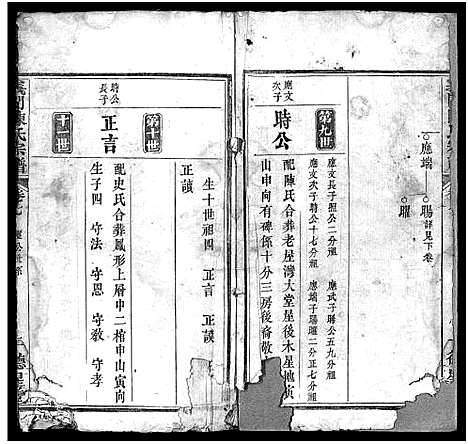 應端
暘 詳見下卷
曜
第九世
應文長子照公二分祖 應武子暘公五九分祖
應文次子時公十七分祖 應端子暘曜二分正七分祖
應文次子
時公
配陳氏合葬老屋灣大堂星後木星地寅
山申向有碑係十分三房後裔敬
生十世祖四 正言 正謨
正讀
第十世
時公長子
正言
配史氏合葬鳳形上層申二棺申山寅向
生子四 守法 守恩 守教 守孝
十一世
陳氏宗譜